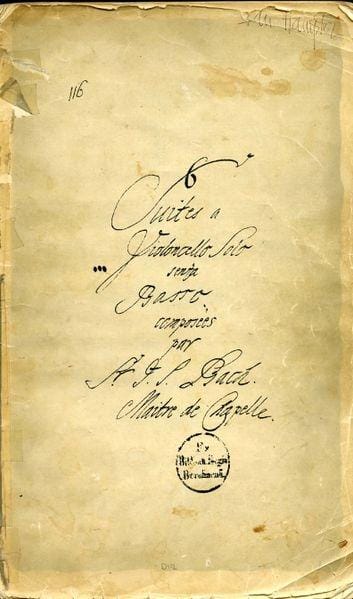 116
6
Suites a
Violoncello Solo
senza
Basso.
composées
par
Sr. J. S. Bach.
Maitre de Capelle.
Ex
Biblioth. Regia
Berolinensi.